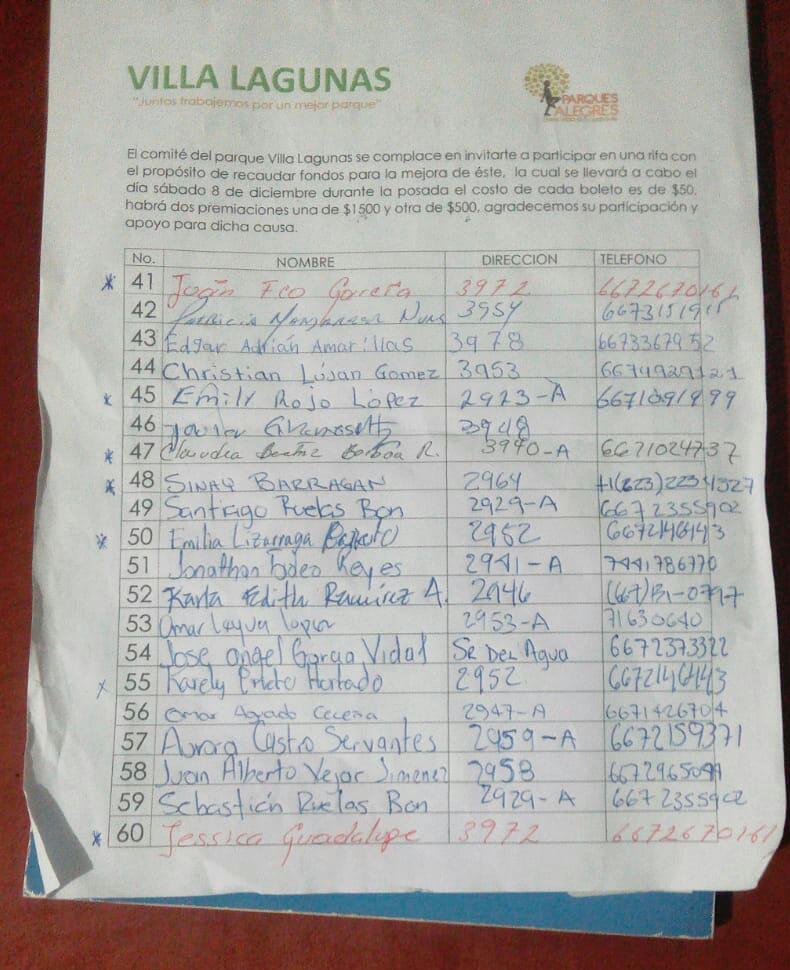 VILLA LAGUNAS
"Juntos trabajemos por un mejor parque"
PARQUES
ALEGRES
El comité del parque Villa Lagunas se complace en invitarte a participar en una rifa con
el propósito de recaudar fondos para la mejora de éste, la cual se llevará a cabo el
día sábado 8 de diciembre durante la posada el costo de cada boleto es de $50,
habrá dos premiaciones una de $1500 y otra de $500, agradecemos su participación y
apoyo para dicha causa.
No. NOMBRE DIRECCION TELEFONO
41 Fco 3972 6672670161
42 Patricia 3954
43 Edgar Adrián Amarillas 3978 6673367952
44 Christian Luján Gomez 3953
45 Emily Rojo López 2923-A 6671091999
46 Javier 3948
47 Claudia R. 3940-A 6671024737
48 SINAY BARRAGAN 2964
49 Santiago Ruelas Bon 2929-A 6672355902
50 Emilia Lizarraga 2952 6672146143
51 Jonathan Reyes 2941-A 7441786770
52 Karla Edith Ramírez A. 2946
53 Omar Leyva Lopez 2953-A 71630640
54 Jose angel Garcia Vidal Se Del Agua 6672373322
55 Karely Prieto Hurtado 2952 6672146143
56 Omar Aguado Ceceña 2947-A 6671426704
57 Aurora Castro Servantes 2959-A 6672159371
58 Juan Alberto Vejar Jimenez 2958
59 Sebastián Ruelas Bon 2929-A 6672355902
60 Jessica Guadalupe 3972 6672670161